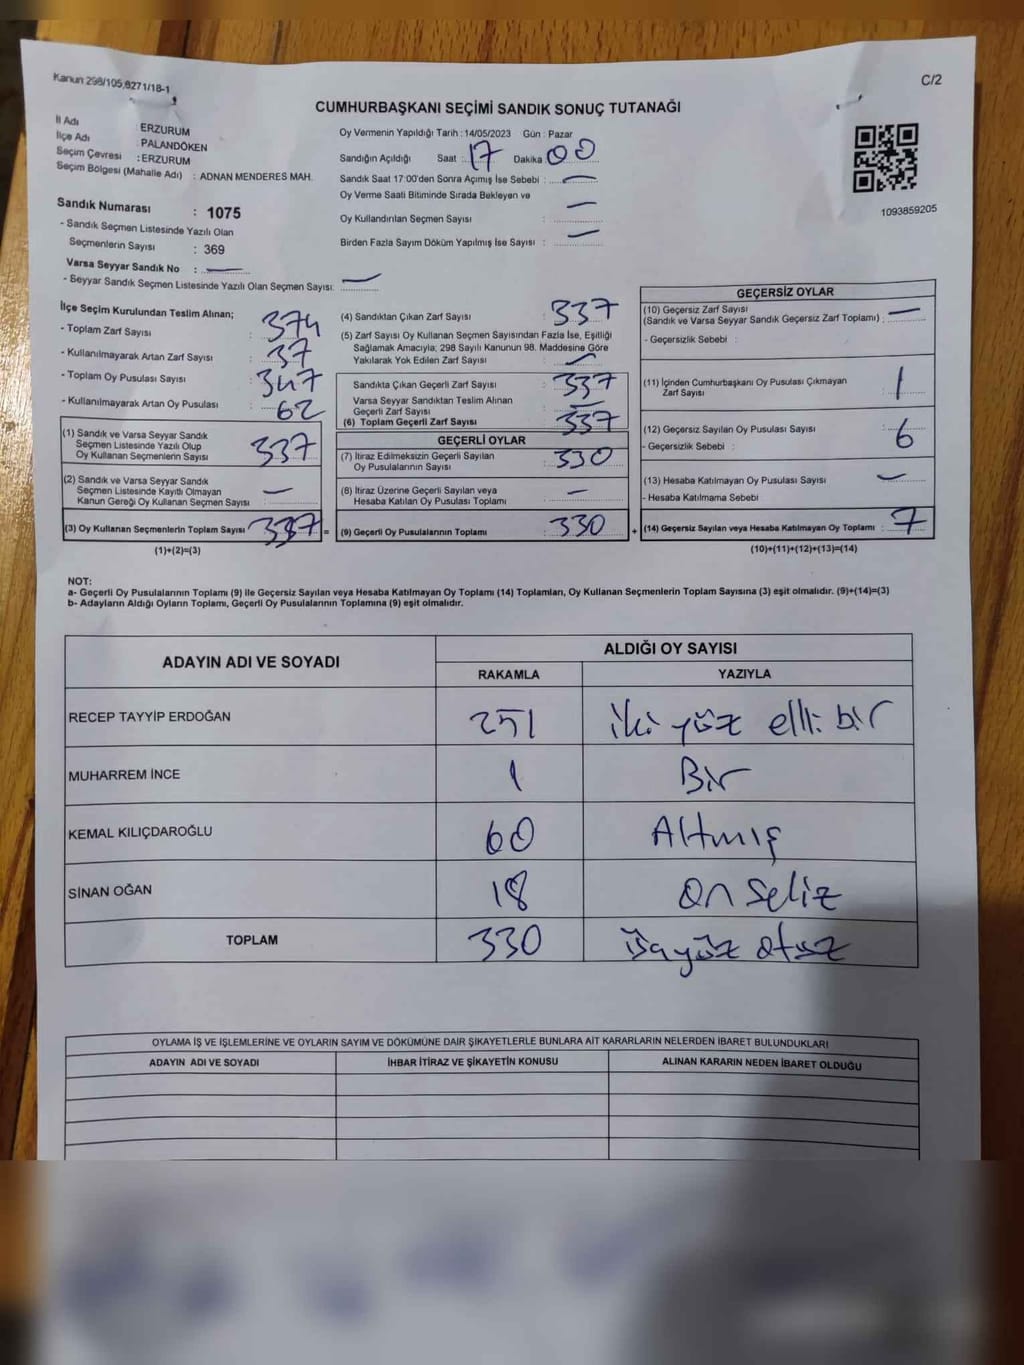 Kanun 298/105,8271/18-1
C/2
CUMHURBAŞKANI SEÇİMİ SANDIK SONUÇ TUTANAĞI
İl Adı : ERZURUM
İlçe Adı : PALANDÖKEN
Seçim Çevresi : ERZURUM
Seçim Bölgesi (Mahalle Adı) : ADNAN MENDERES MAH.
Sandık Numarası : 1075
- Sandık Seçmen Listesinde Yazılı Olan
Seçmenlerin Sayısı : 369
Varsa Seyyar Sandık No : —
- Seyyar Sandık Seçmen Listesinde Yazılı Olan Seçmen Sayısı: —
Oy Vermenin Yapıldığı Tarih : 14/05/2023 Gün : Pazar
Sandığın Açıldığı Saat : 17 Dakika 00
Sandık Saat 17:00'den Sonra Açımış İse Sebebi : —
Oy Verme Saati Bitiminde Sırada Bekleyen ve
Oy Kullandırılan Seçmen Sayısı : —
Birden Fazla Sayım Döküm Yapılmış İse Sayısı : —
1093859205
İlçe Seçim Kurulundan Teslim Alınan;
- Toplam Zarf Sayısı : 374
- Kullanılmayarak Artan Zarf Sayısı : 37
- Toplam Oy Pusulası Sayısı : 347
- Kullanılmayarak Artan Oy Pusulası : 62
(1) Sandık ve Varsa Seyyar Sandık
Seçmen Listesinde Yazılı Olup
Oy Kullanan Seçmenlerin Sayısı : 337
(2) Sandık ve Varsa Seyyar Sandık
Seçmen Listesinde Kayıtlı Olmayan
Kanun Gereği Oy Kullanan Seçmen Sayısı : —
(3) Oy Kullanan Seçmenlerin Toplam Sayısı : 337
(1)+(2)=(3)
(4) Sandıktan Çıkan Zarf Sayısı : 337
(5) Zarf Sayısı Oy Kullanan Seçmen Sayısından Fazla İse, Eşitliği
Sağlamak Amacıyla; 298 Sayılı Kanunun 98. Maddesine Göre
Yakılarak Yok Edilen Zarf Sayısı : —
Sandıkta Çıkan Geçerli Zarf Sayısı : 337
Varsa Seyyar Sandıktan Teslim Alınan
Geçerli Zarf Sayısı : —
(6) Toplam Geçerli Zarf Sayısı : 337
GEÇERLİ OYLAR
(7) İtiraz Edilmeksizin Geçerli Sayılan
Oy Pusulalarının Sayısı : 330
(8) İtiraz Üzerine Geçerli Sayılan veya
Hesaba Katılan Oy Pusulası Toplamı : —
= (9) Geçerli Oy Pusulalarının Toplamı : 330 +
GEÇERSİZ OYLAR
(10) Geçersiz Zarf Sayısı
(Sandık ve Varsa Seyyar Sandık Geçersiz Zarf Toplamı) : —
- Geçersizlik Sebebi :
(11) İçinden Cumhurbaşkanı Oy Pusulası Çıkmayan
Zarf Sayısı : 1
(12) Geçersiz Sayılan Oy Pusulası Sayısı : 6
- Geçersizlik Sebebi :
(13) Hesaba Katılmayan Oy Pusulası Sayısı : —
- Hesaba Katılmama Sebebi
(14) Geçersiz Sayılan veya Hesaba Katılmayan Oy Toplamı : 7
(10)+(11)+(12)+(13)=(14)
NOT:
a- Geçerli Oy Pusulalarının Toplamı (9) ile Geçersiz Sayılan veya Hesaba Katılmayan Oy Toplamı (14) Toplamları, Oy Kullanan Seçmenlerin Toplam Sayısına (3) eşit olmalıdır. (9)+(14)=(3)
b- Adayların Aldığı Oyların Toplamı, Geçerli Oy Pusulalarının Toplamına (9) eşit olmalıdır.
ADAYIN ADI VE SOYADI ALDIĞI OY SAYISI
RAKAMLA YAZIYLA
RECEP TAYYİP ERDOĞAN 251 iki yüz elli bir
MUHARREM İNCE 1 Bir
KEMAL KILIÇDAROĞLU 60 Altmış
SİNAN OĞAN 18 on sekiz
TOPLAM 330 üçyüz otuz
OYLAMA İŞ VE İŞLEMLERİNE VE OYLARIN SAYIM VE DÖKÜMÜNE DAİR ŞİKAYETLERLE BUNLARA AİT KARARLARIN NELERDEN İBARET BULUNDUKLARI
ADAYIN ADI VE SOYADI İHBAR İTİRAZ VE ŞİKAYETİN KONUSU ALINAN KARARIN NEDEN İBARET OLDUĞU